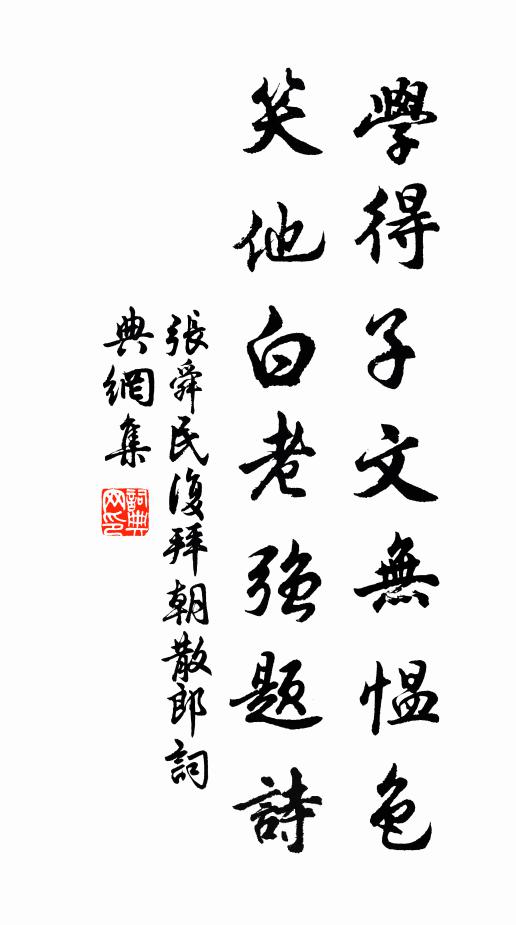 學得子文無愠色
笑他白老強題詩
張舜民復拜朝散郎詞
典網集
詞典網印